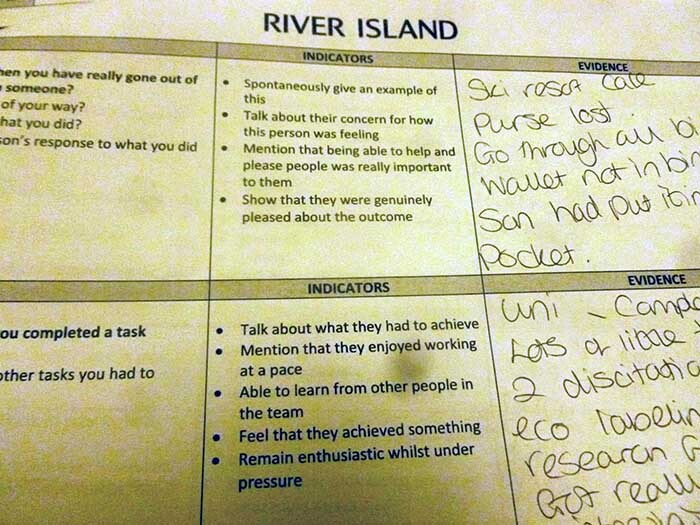 RIVER ISLAND
INDICATORS
EVIDENCE
hen you have really gone out of
someone?
of your way?
hat you did?
son's response to what you did
• Spontaneously give an example of
this
• Talk about their concern for how
this person was feeling
• Mention that being able to help and
please people was really important
to them
• Show that they were genuinely
pleased about the outcome
Ski resort cafe
Purse lost.
Go through all bi
Wallet not in bin
Son had put it in
Pocket.
INDICATORS
EVIDENCE
ou completed a task
other tasks you had to
• Talk about what they had to achieve
• Mention that they enjoyed working
at a pace
• Able to learn from other people in
the team
• Feel that they achieved something
• Remain enthusiastic whilst under
pressure
Uni -
Lots of
2
eco labelin
research
Got really